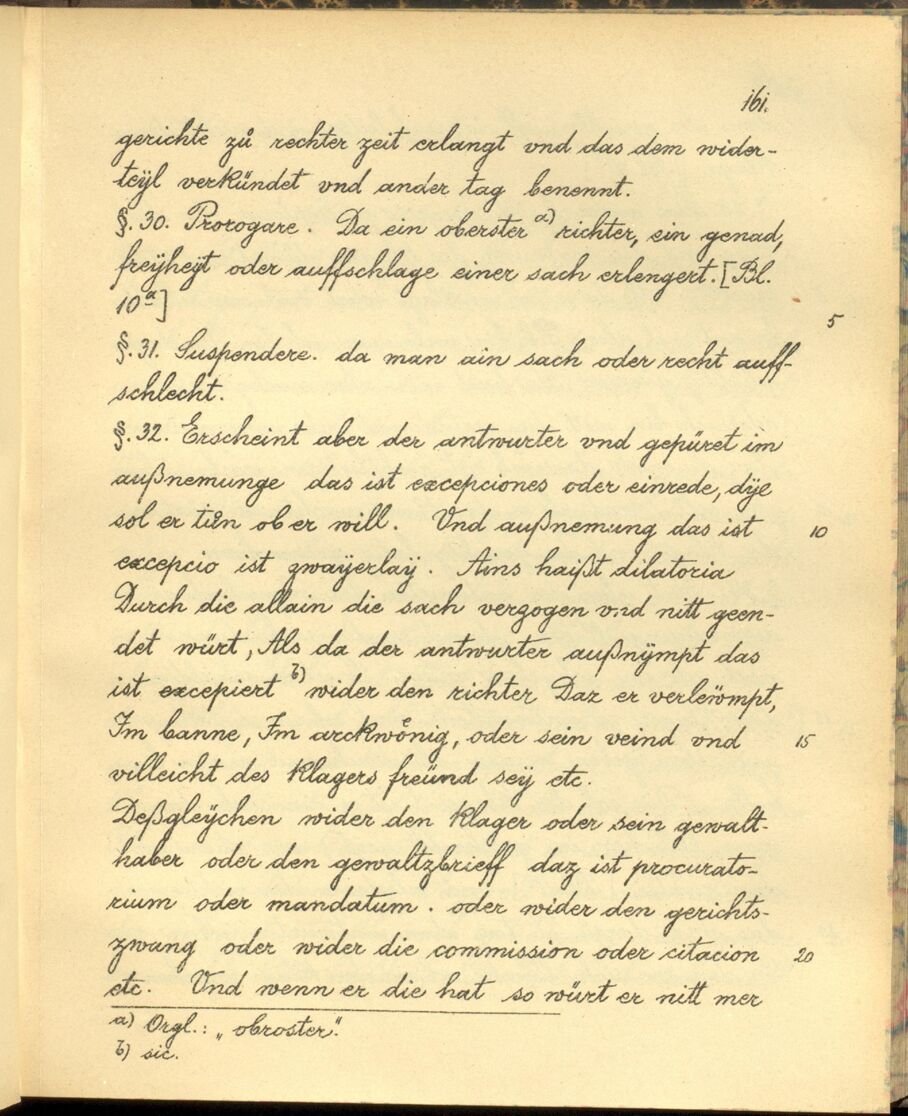 161.
gerichte zů rechter zeit erlangt vnd das dem wider-
teÿl verkündet vnd ander tag benennt.
§. 30. Prorogare. Da ein oberster a) richter, ein genad,
freÿheÿt oder auffschlage einer sach erlengert. [Bl.
10a]
5
§. 31. Suspendere. da man ain sach oder recht auff-
schlecht.
§. 32. Erscheint aber der antwurter vnd gepüret im
außnemunge das ist excepciones oder einrede, dÿe
sol er tůn ob er will. Vnd außnemung das ist 10
excepcio ist zwaÿerlaÿ. Ains haißt dilatoria
Durch die allain die sach verzogen vnd nitt geen-
det würt, Als da der antwurter außnÿmpt das
ist excepiert b) wider den richter Daz er verleẅmpt,
Im banne, Im arckwönig, oder sein veind vnd 15
villeicht des klagers freünd seÿ etc.
Deßgleÿchen wider den klager oder sein gewalt-
haber oder den gewaltzbrieff daz ist procurato-
rium oder mandatum. oder wider den gerichts-
zwang oder wider die commission oder citacion 20
etc. Vnd wenn er die hat so würt er nitt mer
a) Orgl.: „obroster".
b) sic.